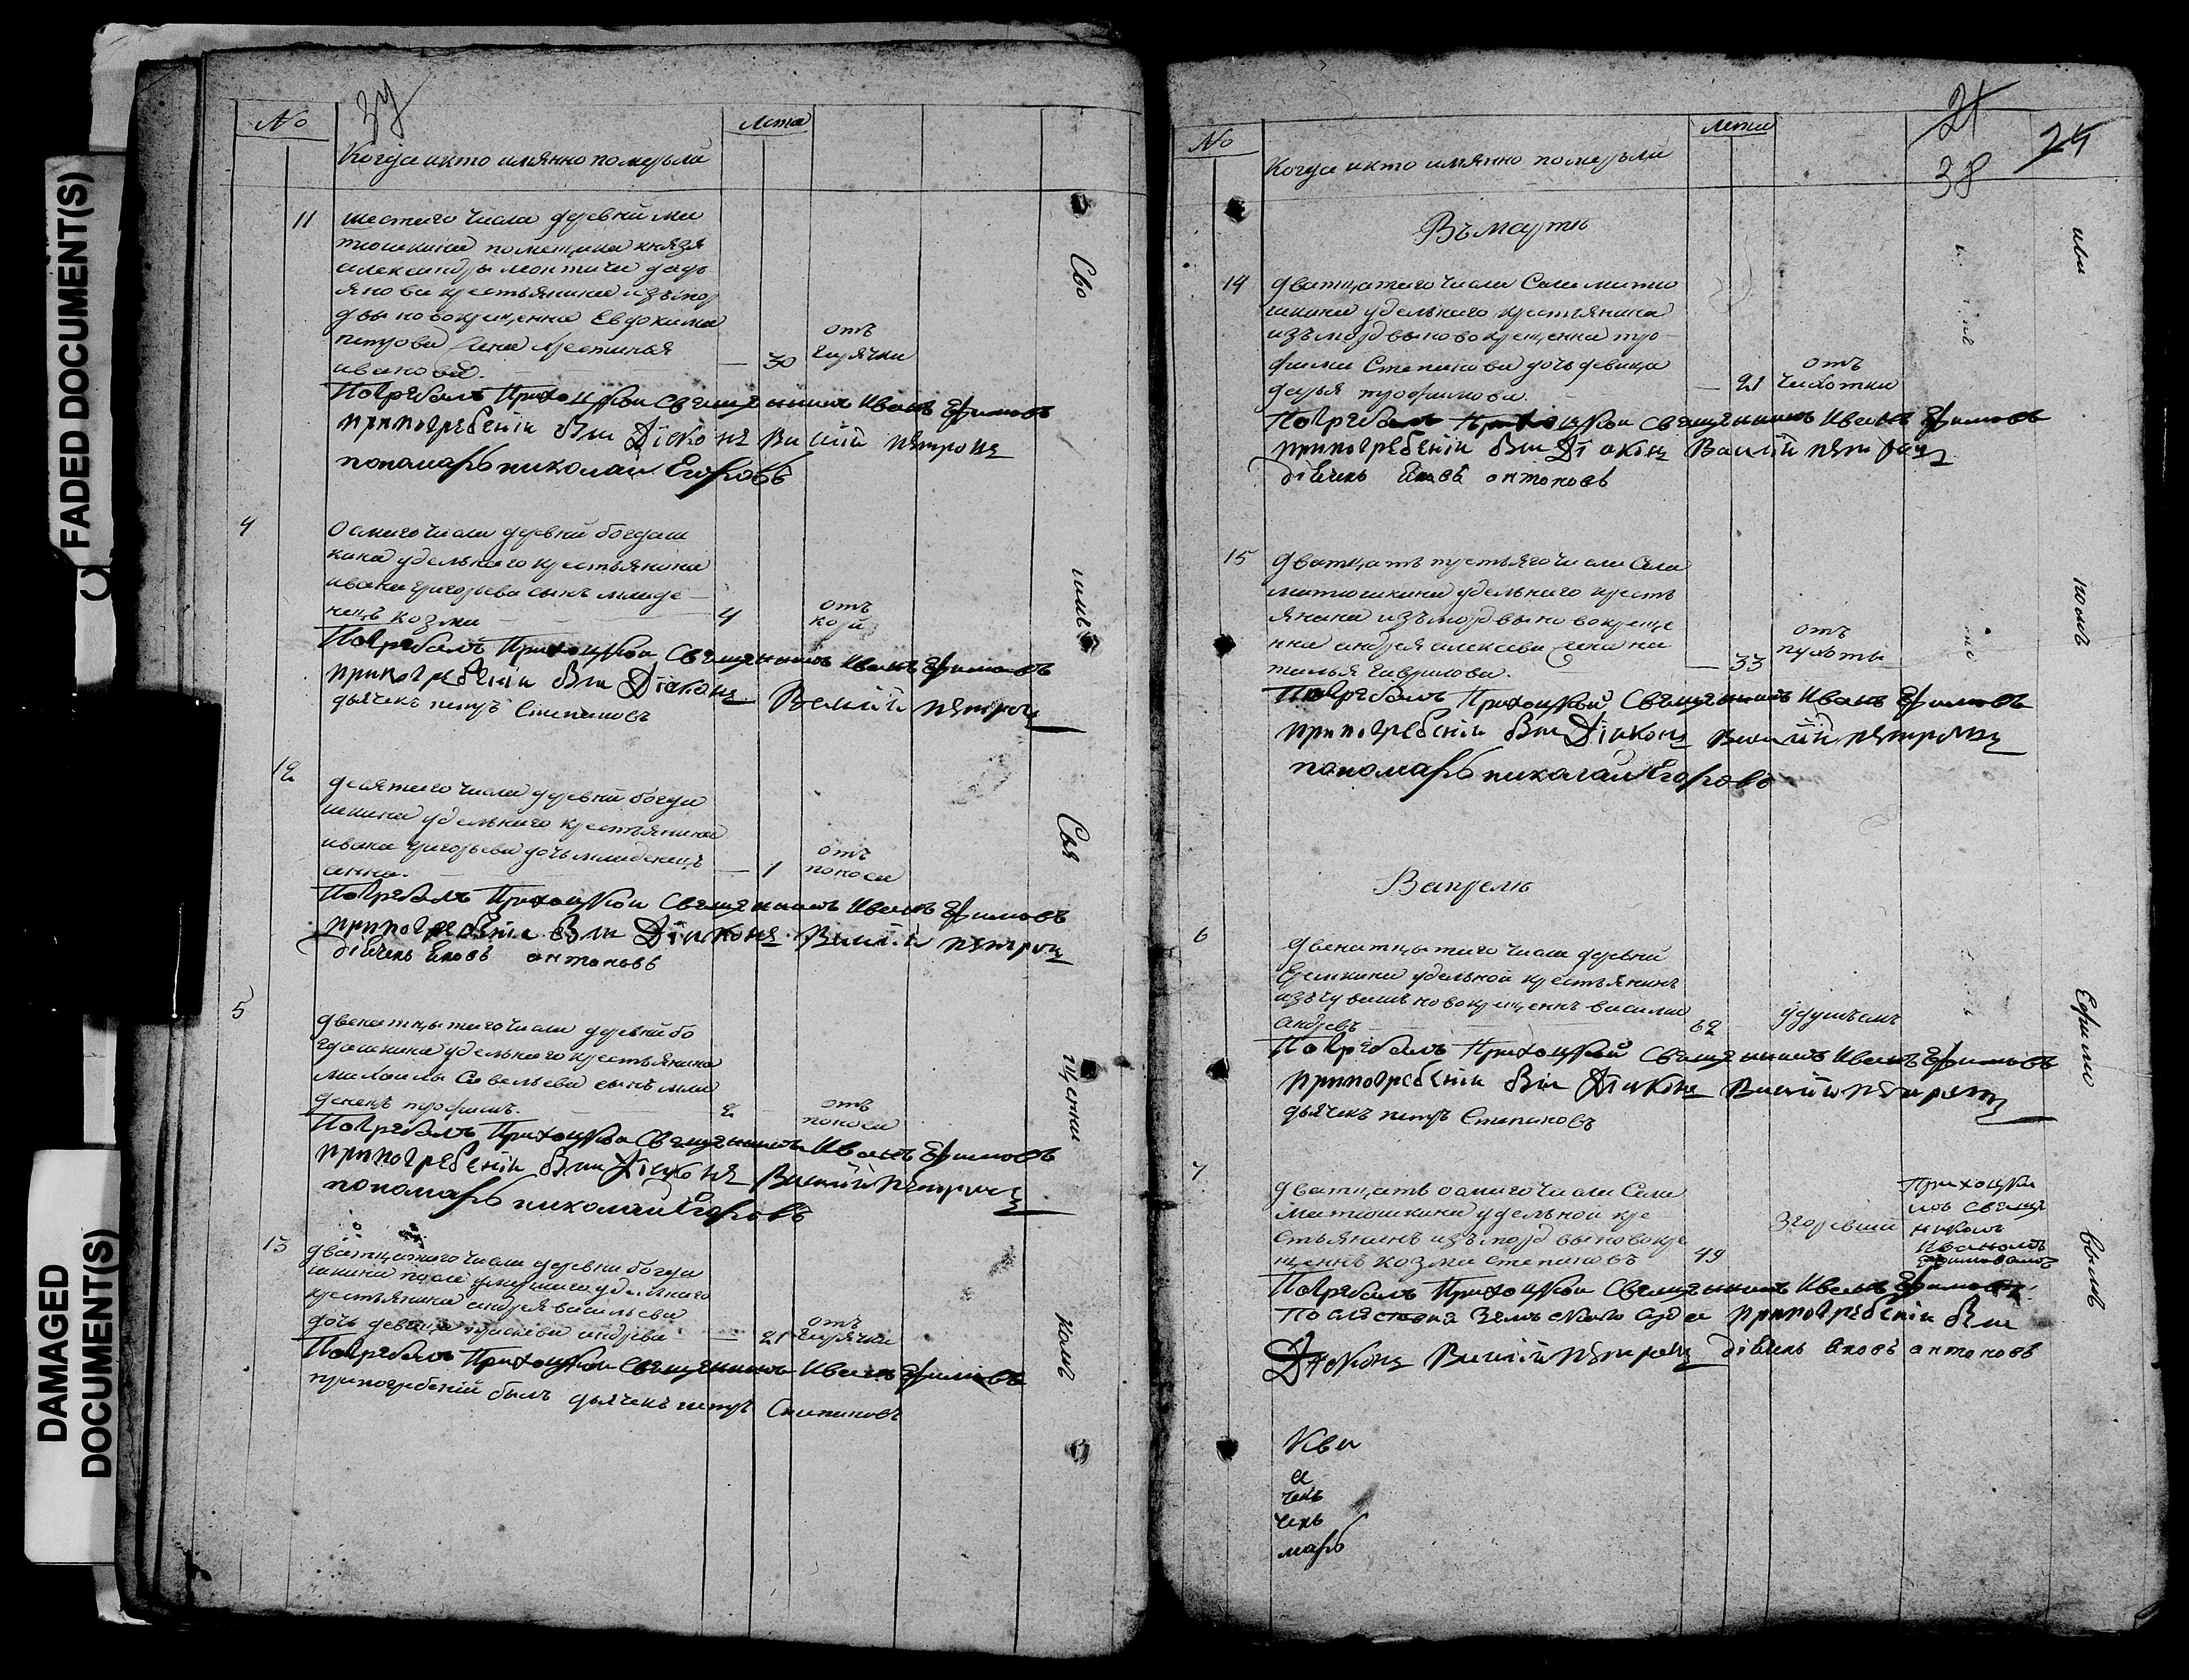 FADED DOCUMENT(S)
DAMAGED
DOCUMENT(S)
37
No
Лета
Когда икто имянно померьли
11
шестаго числа деревни ма
тюшкина помещика князя
александры леонтича дадь
янова крестьянина изъ мор
двы новокрещенна Евдокима
петрова жена Устинья
иванова.
30
отъ
горячки
Погребалъ Приходцкои Священникъ Иванъ Ефимовъ
припогребеніи был Діяконъ Василій петровъ
пономарь николаи Егоровъ
4
Осмаго числа деревни богдаш
кина удельнаго крестьянина
ивана григорьева сынъ младе
нецъ козма
4
отъ
кори
Погребалъ Приходцкои Священникъ Иванъ Ефимовъ
припогребеніи был Діяконъ Василій петровъ
дьячекъ петръ Степановъ
12
десятаго числа деревни богда
шкина удельнаго крестьянина
ивана григорьева дочь младенецъ
анна.
1
отъ
поноса
Погребалъ Приходцкои Священникъ Иванъ Ефимовъ
припогребеніи был Діяконъ Василій петровъ
діячекъ Яковъ антоновъ
5
двенатцатаго числа деревни бо
гдашкина удельнаго крестьянина
михаилы Савельева сынъ мла
денецъ трофимъ.
2
отъ
поноса
Погребалъ Приходцкои Священникъ Иванъ Ефимовъ
припогребеніи был Діяконъ Василій петровъ
пономарь николаи Егоровъ
13
дватцатаго числа деревни богда
шкина после умершаго удельнаго
крестьянина андрея васильева
дочь девица праскева андрева
21
отъ
горячки
Погребалъ Приходцкои Священникъ Иванъ Ефимовъ
припогребеній былъ дьячекъ петръ Степановъ
Сво
имъ
Свя
щенни
комъ
21
24
38
No
Лета
Когда икто имянно померьли
Въ мартѣ
14
дватцатаго числа Села матю
шкина удельнаго крестьянина
изъ мордвы новокрещенна тро
фима Степанова дочь девица
дарья трофимова.
21
отъ
чихотки
Погребалъ Приходцкои Священникъ Иванъ Ефимовъ
припогребеніи был Діяконъ Василій петровъ
діячекъ Яковъ антоновъ
15
дватцать третьяго числа Села
матюшкина удельнаго кресть
янина изъ мордвы новокреще
нна андрея алексева жена на
талья гаврилова.
33
отъ
пухоты
Погребалъ Приходцкои Священникъ Иванъ Ефимовъ
припогребеніи был Діяконъ Василій петровъ
пономарь николаи Егоровъ
Вапреле
6
двенатцатаго числа деревни
Ерыкина удельной крестьянинъ
изъ чувашъ новокрещеннъ василий
андревъ
62
удушъемъ
Погребалъ Приходцкой Священникъ Иванъ Ефимовъ
припогребеніи был Діяконъ Василій петровъ
дьячекъ петръ Степановъ
7
дватцать осмаго числа Села
Матюшкина удельной кре
стьянинъ изъ мордвы новокре
щеннъ козма степановъ
49
Згоревший
Приходцки
мъ Свяще
нникомъ
Иваномъ
Ефимовымъ
Погребалъ Приходцкои Священникъ Иванъ Ефимовъ
После Земскаго Суда припогребеніи был
Діяконъ Василій петровъ діячекъ Яковъ антоновъ
Ива
номъ
Ефимо
вымъ
чекъ
чекъ
марь